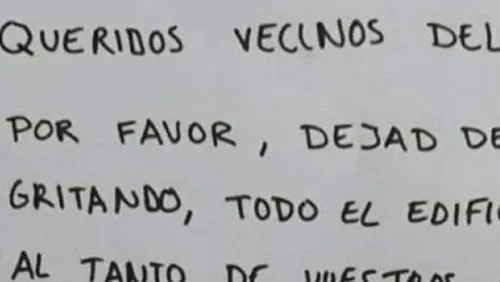 QUERIDOS VECINOS DEL
POR FAVOR, DEJAD DE
GRITANDO, TODO EL EDIFIC
AL TANTO DE VUESTROS